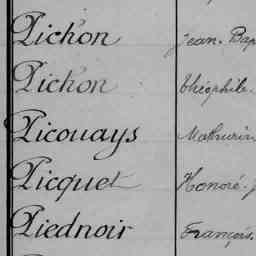 Pichon Jean. Bap
Pichon Théophile.
Picouays Mathurin
Picquet Honoré. J
Piednoir François.